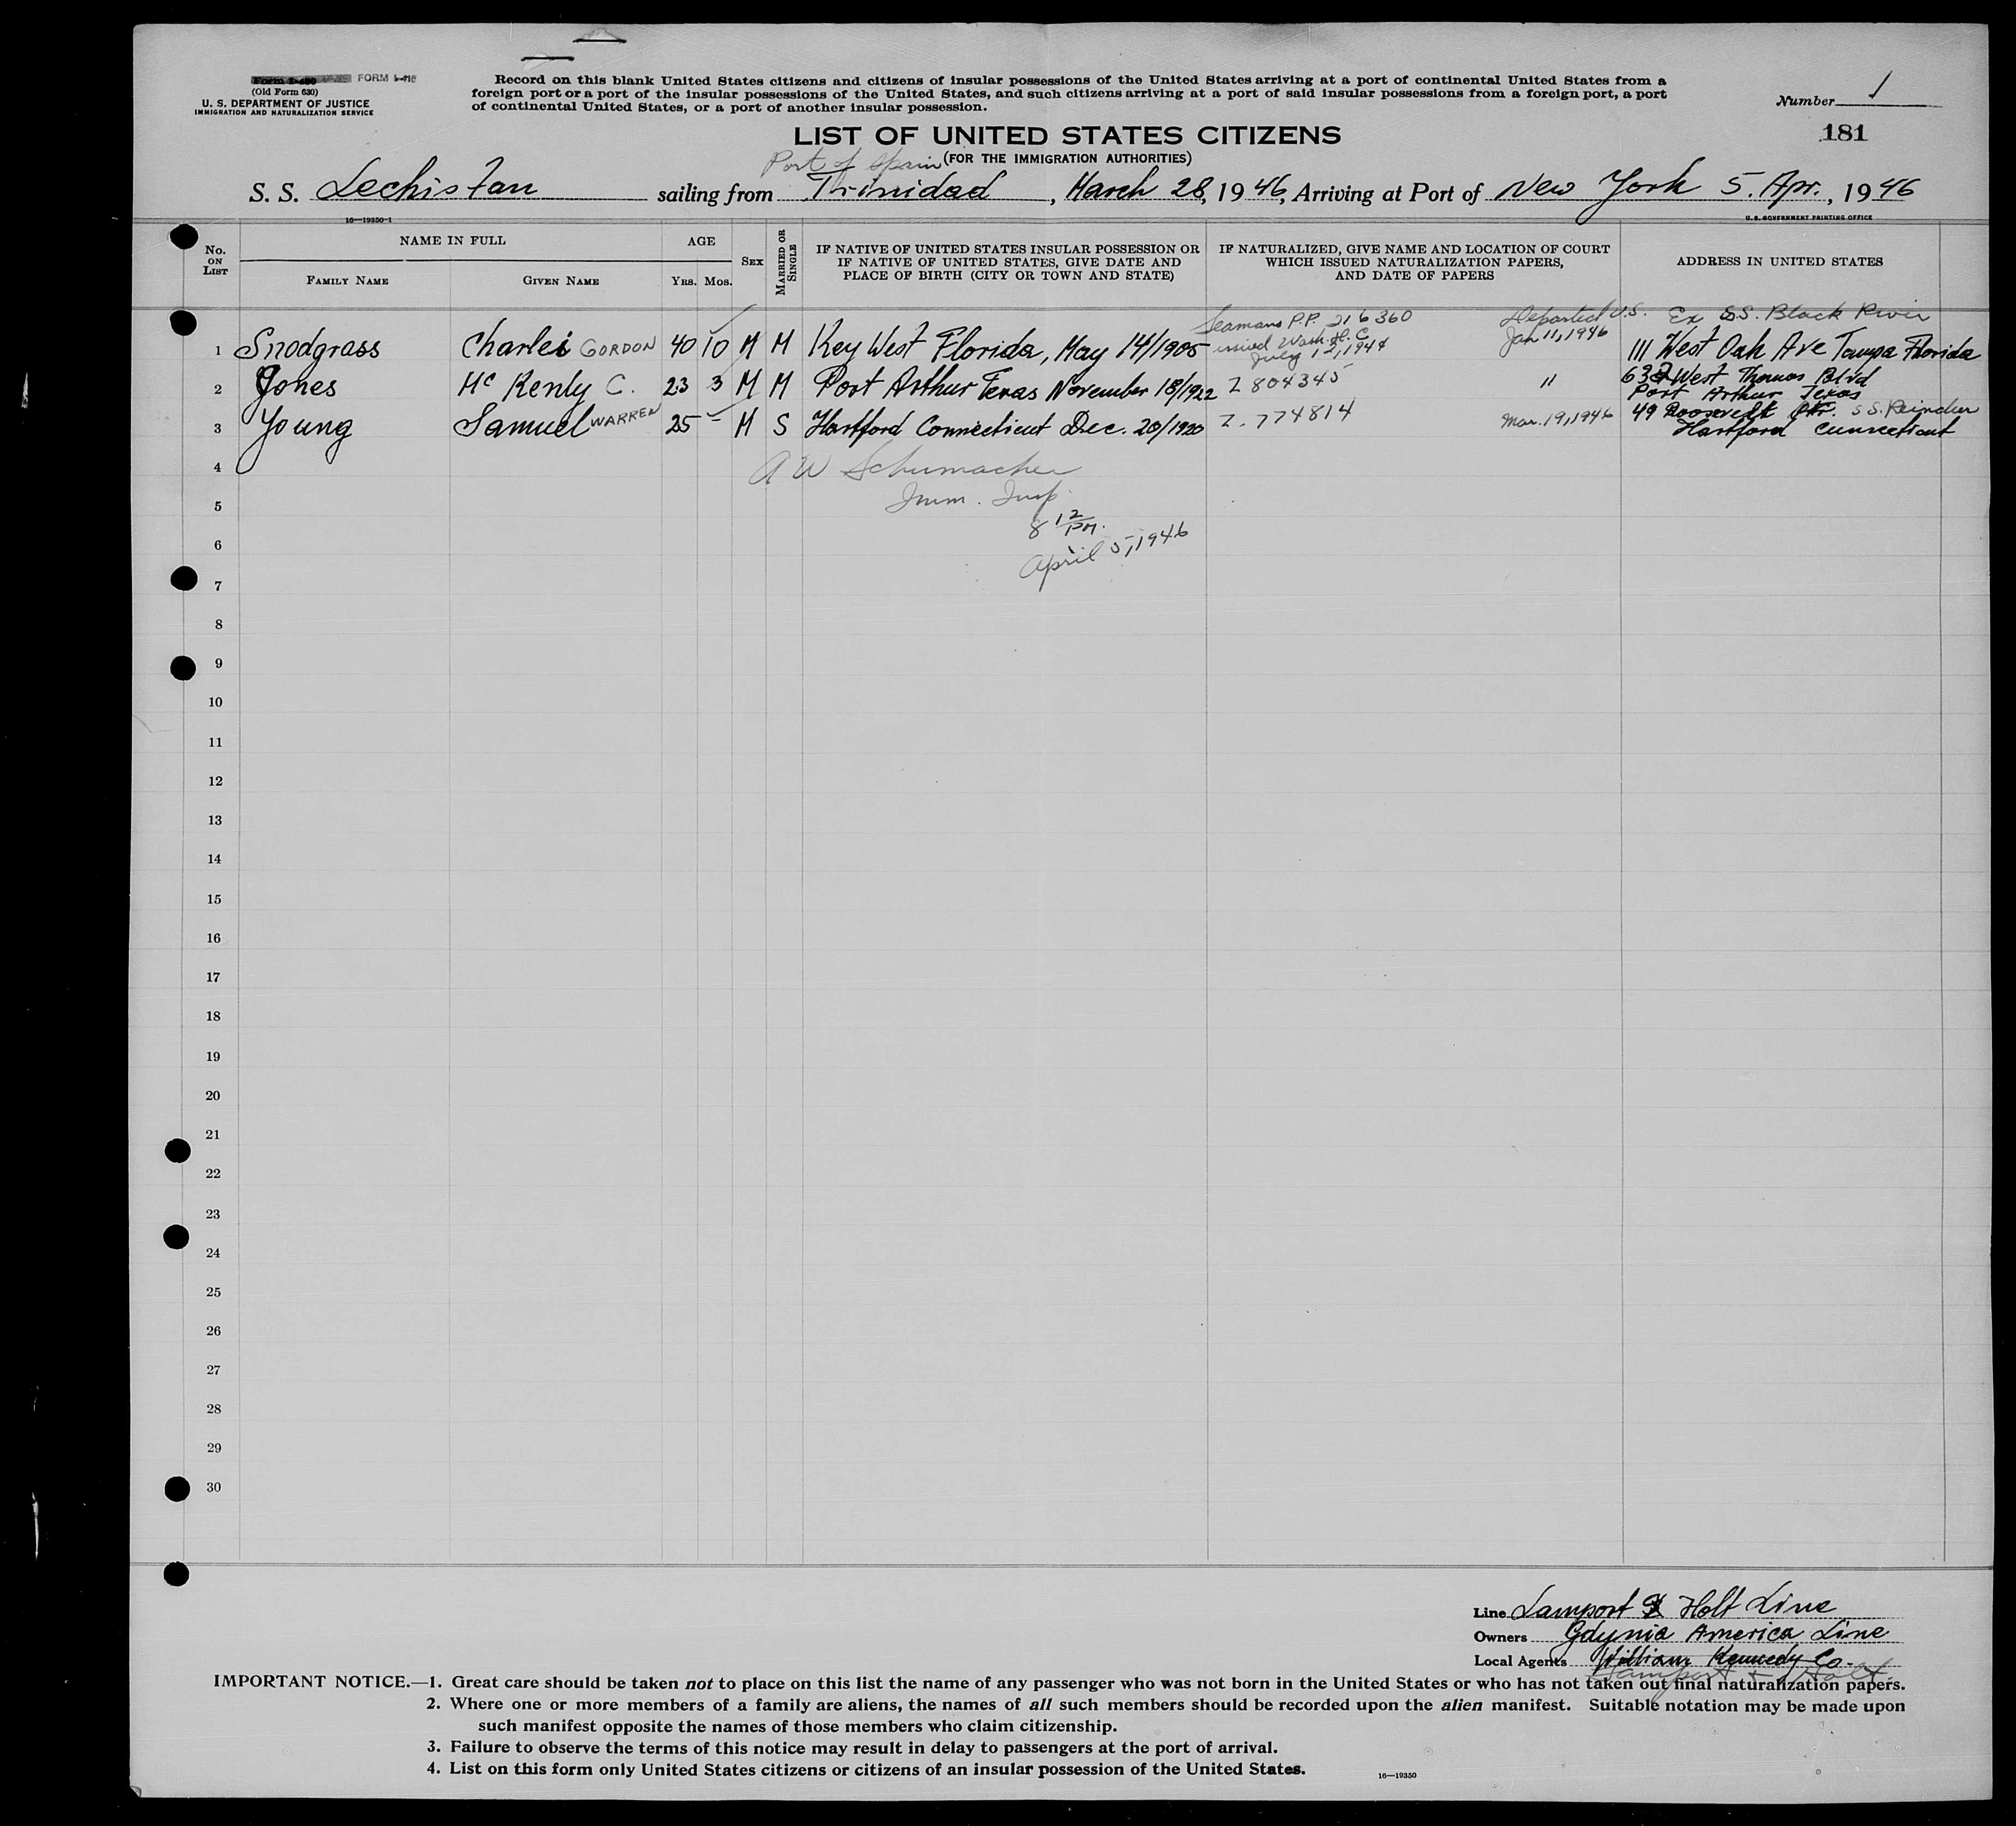 FORM I-416
(Old Form 630)
U. S. DEPARTMENT OF JUSTICE
IMMIGRATION AND NATURALIZATION SERVICE
Record on this blank United States citizens and citizens of insular possessions of the United States arriving at a port of continental United States from a
foreign port or a port of the insular possessions of the United States, and such citizens arriving at a port of said insular possessions from a foreign port, a port
of continental United States, or a port of another insular possession.
Number 1
181
LIST OF UNITED STATES CITIZENS
(FOR THE IMMIGRATION AUTHORITIES)
Port of Spain
S. S. Lechistan sailing from Trinidad, March 28, 1946, Arriving at Port of New York 5. Apr., 1946
16—19350-1
U. S. GOVERNMENT PRINTING OFFICE
No. ON LIST
NAME IN FULL
FAMILY NAME
GIVEN NAME
AGE
YRS. MOS.
SEX
MARRIED OR SINGLE
IF NATIVE OF UNITED STATES INSULAR POSSESSION OR
IF NATIVE OF UNITED STATES, GIVE DATE AND
PLACE OF BIRTH (CITY OR TOWN AND STATE)
IF NATURALIZED, GIVE NAME AND LOCATION OF COURT
WHICH ISSUED NATURALIZATION PAPERS,
AND DATE OF PAPERS
ADDRESS IN UNITED STATES
Seamans P.P. 216360 Departed U.S. Ex S.S. Black River
1 Snodgrass Charles GORDON 40 10 M M Key West Florida, May 14/1905 issued Wash. D.C. July 12, 1944 Jan 11, 1946 111 West Oak Ave Tampa Florida
2 Jones Mc Kenly C. 23 3 M M Port Arthur Texas November 18/1922 Z 804345 " 632 West Thomas Blvd
Port Arthur Texas
3 Young Samuel WARREN 25 – M S Hartford Connecticut Dec. 20/1920 Z. 774814 Mar. 19, 1946 49 Roosevelt Str. S.S.
Hartford Connecticut
4
A W Schumacher
5
Imm. Insp.
8 12 PM.
6
April 5, 1946
7
8
9
10
11
12
13
14
15
16
17
18
19
20
21
22
23
24
25
26
27
28
29
30
Line Lamport & Holt Line
Owners Gdynia America Line
Local Agents William Kennedy Co.
Lamport & Holt
IMPORTANT NOTICE.—1. Great care should be taken not to place on this list the name of any passenger who was not born in the United States or who has not taken out final naturalization papers.
2. Where one or more members of a family are aliens, the names of all such members should be recorded upon the alien manifest. Suitable notation may be made upon
such manifest opposite the names of those members who claim citizenship.
3. Failure to observe the terms of this notice may result in delay to passengers at the port of arrival.
4. List on this form only United States citizens or citizens of an insular possession of the United States.
16—19350